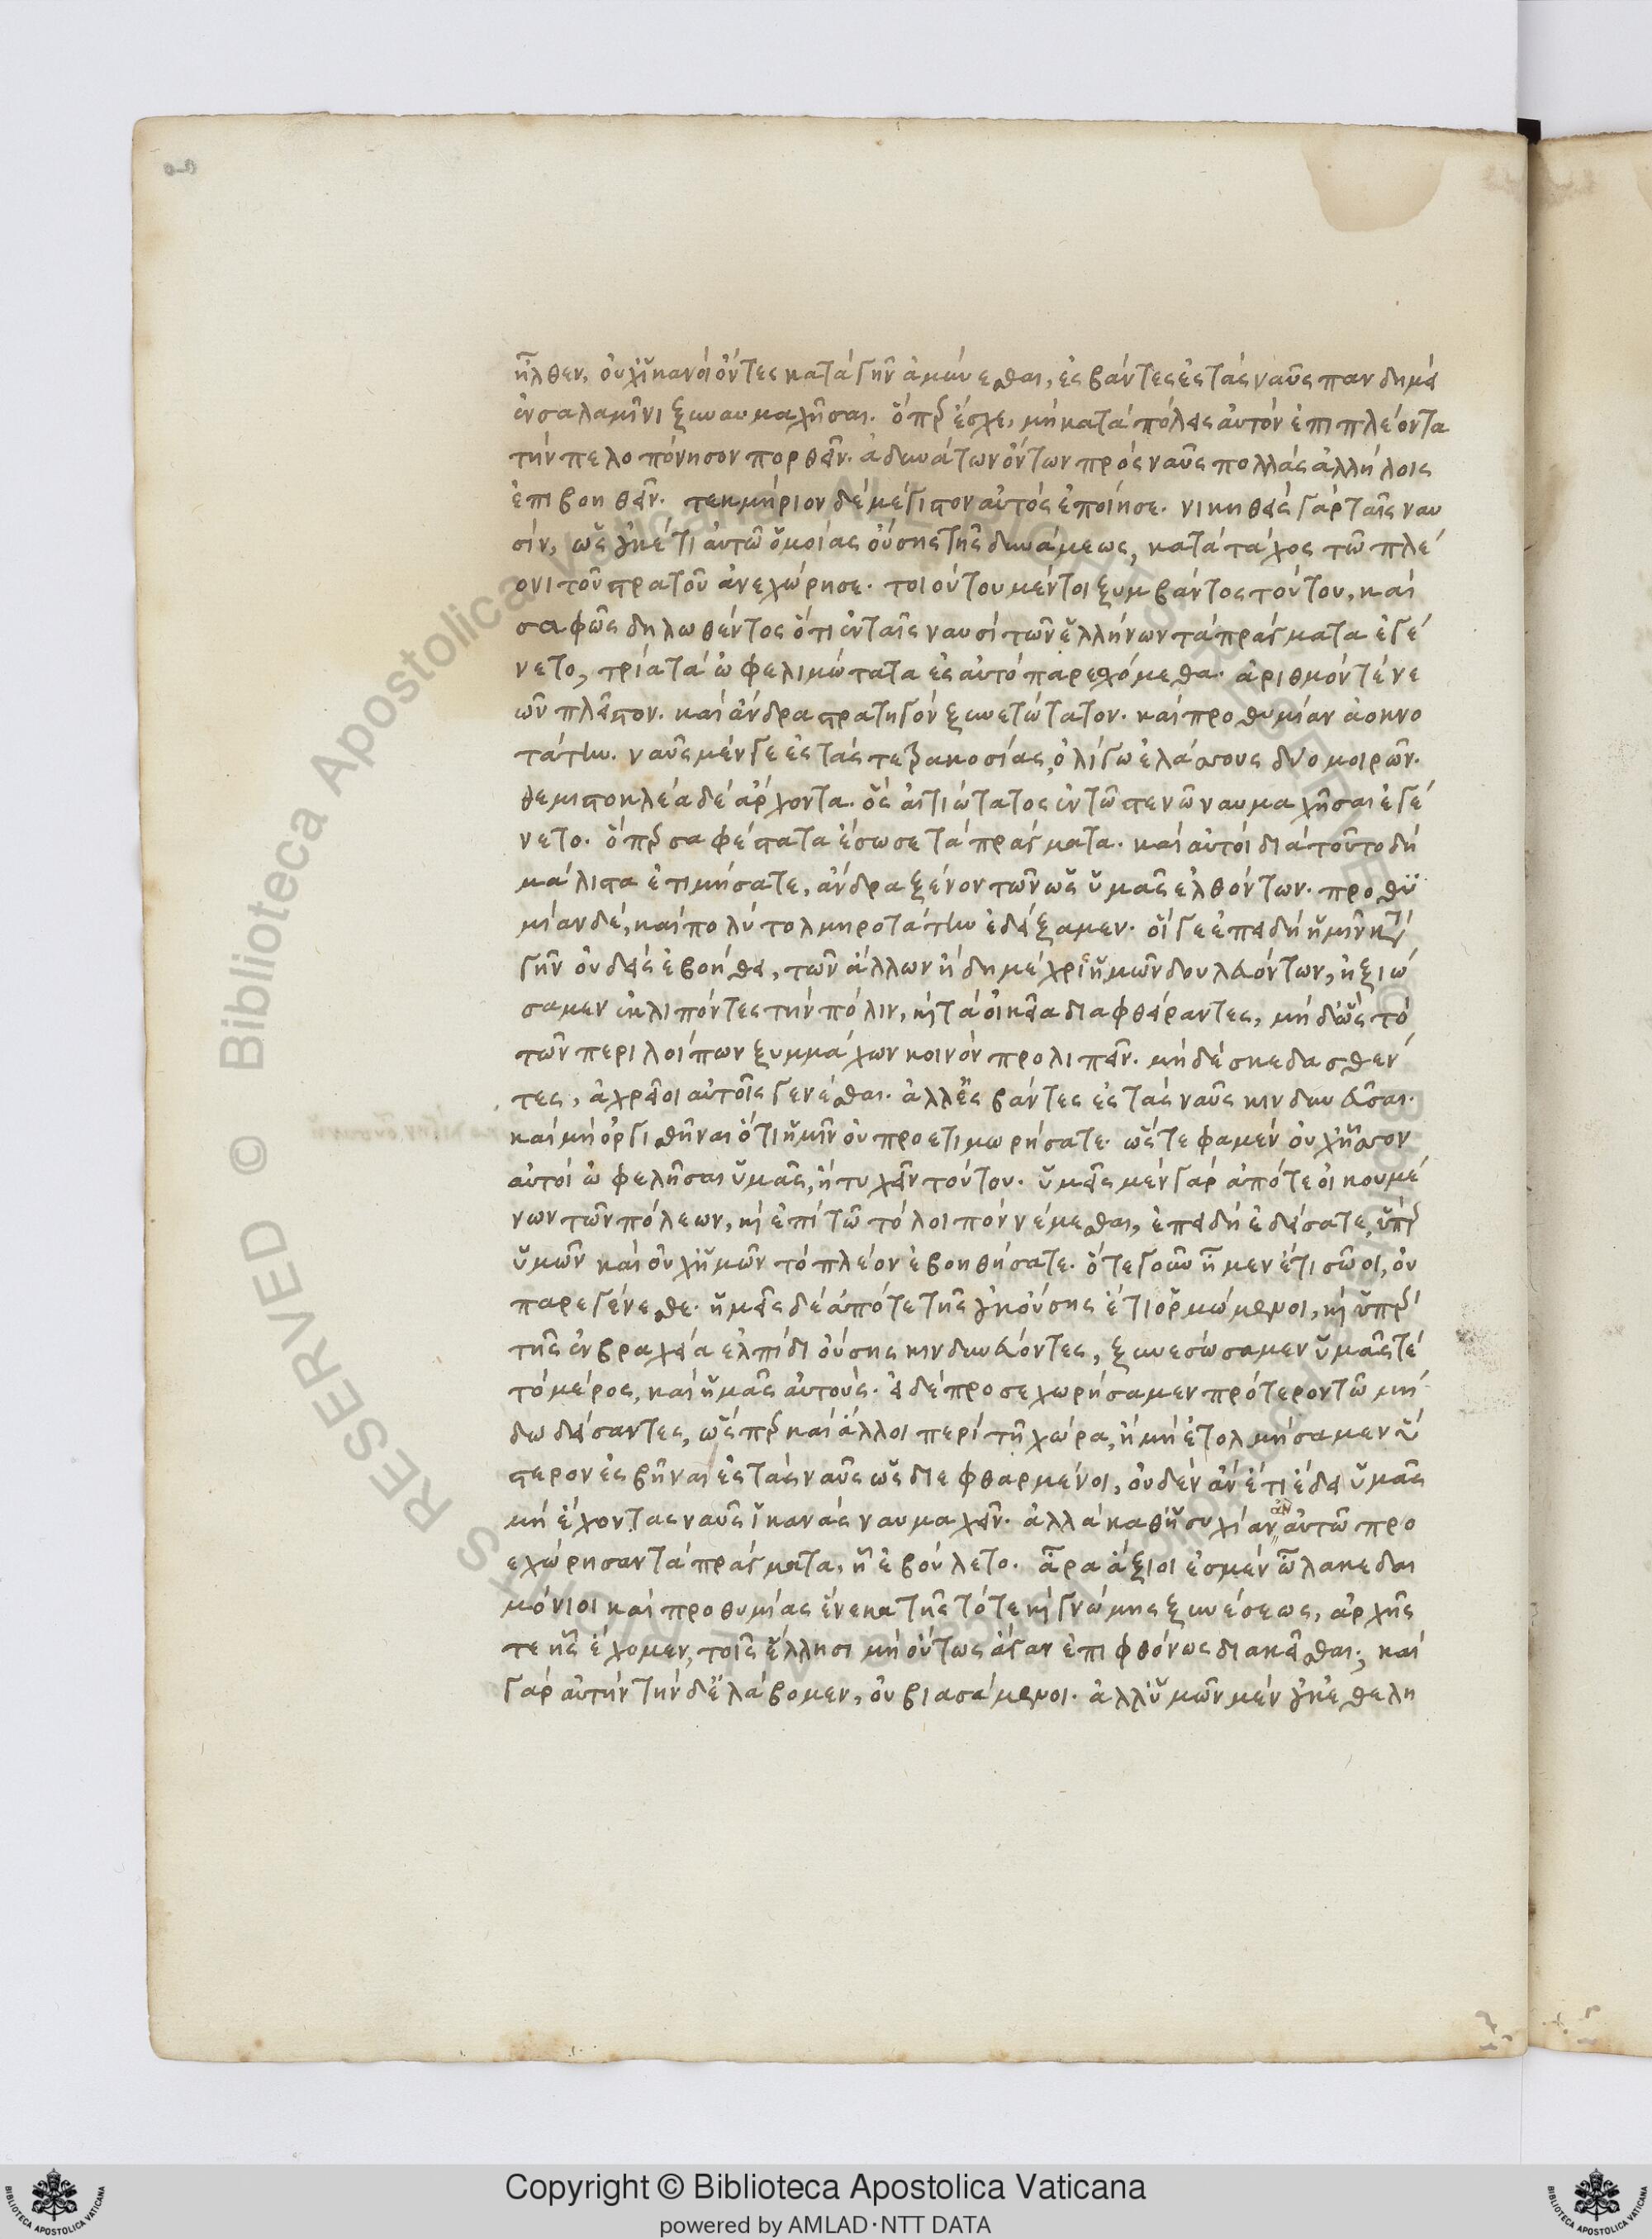 ἦλθεν, οὐχ ἱκανοὶ ὄντες κατὰ γῆν ἀμύνεσθαι, ἐσβάντες ἐς τὰς ναῦς πανδημεὶ
ἐν σαλαμῖνι ξυναυμαχῆσαι. ὅπερ ἔσχε, μὴ κατὰ πόλεις αὐτὸν ἐπιπλέοντα
τὴν πελοπόνησον πορθεῖν. ἀδυνάτων ὄντων πρὸς ναῦς πολλὰς ἀλλήλοις
ἐπιβοηθεῖν. τεκμήριον δὲ μέγιστον αὐτὸς ἐποίησε. νικηθεὶς γὰρ ταῖς ναυ
σὶν, ὡς οὐκέτι αὐτῶ ὁμοίας οὔσης τῆς δυνάμεως, κατὰ τάχος τῶ πλέ
ονι τοῦ στρατοῦ ἀνεχώρησε. τοιούτου μέντοι ξυμβάντος τούτου, καὶ
σαφῶς δηλωθέντος ὅτι ἐν ταῖς ναυσὶ τῶν ἑλλήνων τὰ πράγματα ἐγέ
νετο, τρία τὰ ὠφελιμώτατα ἐς αὐτὸ παρεσχόμεθα. ἀριθμόν τε νε
ῶν πλεῖστον. καὶ ἄνδρα στρατηγὸν ξυνετώτατον. καὶ προθυμίαν ἀοκνο
τάτην. ναῦς μέν γε ἐς τὰς τετρακοσίας, ὀλίγω ἐλάσσους δύο μοιρῶν.
θεμιστοκλέα δὲ ἄρχοντα. ὃς αἰτιώτατος ἐν τῶ στενῶ ναυμαχῆσαι ἐγέ
νετο. ὅπερ σαφέστατα ἔσωσε τὰ πράγματα. καὶ αὐτοὶ διὰ τοῦτο δὴ
μάλιστα ἐτιμήσατε, ἄνδρα ξένον τῶν ὡς ὑμᾶς ἐλθόντων. προθυ
μίαν δὲ, καὶ πολὺ τολμηροτάτην ἐδείξαμεν. οἵ γε ἐπειδὴ ἡμῖν κατὰ
γῆν οὐδεὶς ἐβοήθει, τῶν ἄλλων ἤδη μέχρι ἡμῶν δουλευόντων, ἠξιώ
σαμεν ἐκλιπόντες τὴν πόλιν, καὶ τὰ οἰκεῖα διαφθείραντες, μηδ' ὣς τὸ
τῶν περιλοίπων ξυμμάχων κοινὸν προλιπεῖν. μηδὲ σκεδασθέν
τες, ἀχρεῖοι αὐτοῖς γενέσθαι. ἀλλ' ἐσβάντες ἐς τὰς ναῦς κινδυνεῦσαι.
καὶ μὴ ὀργισθῆναι ὅτι ἡμῖν οὐ προετιμωρήσατε. ὥστε φαμὲν οὐχ ἧσσον
αὐτοὶ ὠφελῆσαι ὑμᾶς, ἢ τυχεῖν τούτου. ὑμεῖς μὲν γὰρ ἀπό τε οἰκουμέ
νων τῶν πόλεων, καὶ ἐπὶ τῶ τὸ λοιπὸν νέμεσθαι, ἐπειδὴ ἐδείσατε, ὑπὲρ
ὑμῶν καὶ οὐχ ἡμῶν τὸ πλέον ἐβοηθήσατε. ὅτε γοῦν ἦμεν ἔτι σῶοι, οὐ
παρεγένεσθε. ἡμεῖς δὲ ἀπό τε τῆς οὐκ οὔσης ἔτι ὁρμώμενοι, καὶ ὑπὲρ
τῆς ἐν βραχεία ἐλπίδι οὔσης κινδυνεύοντες, ξυνεσώσαμεν ὑμᾶς τὲ
τὸ μέρος, καὶ ἡμᾶς αὐτούς. εἰ δὲ προσεχωρήσαμεν πρότερον τῶ μή
δω δείσαντες, ὥσπερ καὶ ἄλλοι περὶ τῆ χώρα, ἢ μὴ ἐτολμήσαμεν ὕ
στερον ἐσβῆναι ἐς τὰς ναῦς ὡς διεφθαρμένοι, οὐδὲν ἂν ἔτι ἔδει ὑμᾶς
μὴ ἔχοντας ναῦς ἱκανὰς ναυμαχεῖν. ἀλλὰ καθ' ἡσυχίαν ἂν αὐτῶ προ
εχώρησαν τὰ πράγματα, ἧ ἐβούλετο. ἆρα ἄξιοι ἐσμὲν ὦ λακεδαι
μόνιοι καὶ προθυμίας ἕνεκα τῆς τότε καὶ γνώμης ξυνέσεως, ἀρχῆς
τε ἧς ἔχομεν, τοῖς ἕλλησι μὴ οὕτως ἄγαν ἐπιφθόνως διακεῖσθαι; καὶ
γὰρ αὐτὴν τήνδε ἐλάβομεν, οὐ βιασάμενοι. ἀλλ' ὑμῶν μὲν οὐκ ἐθελη
Copyright © Biblioteca Apostolica Vaticana
powered by AMLAD·NTT DATA